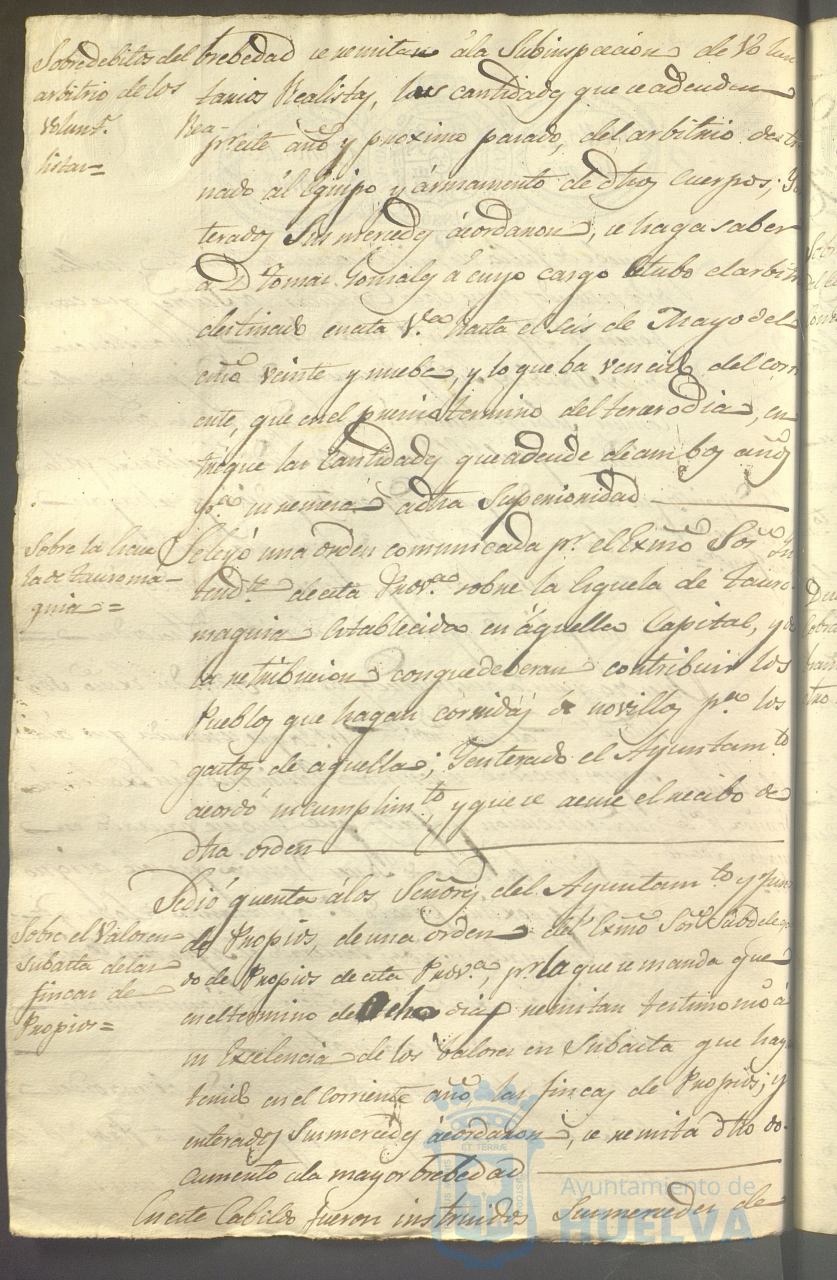 Sobre debitos del
arbitrio de los
Volunt.s Rea-
listas=
brebedad se remitan á la Subinspeccion de Volun
tarios Realistas, las cantidades que se adeuden
p.r este año y proximo pasado, del arbitrio desti
nado ál Equipo y ármamento de dhos Cuerpos; Yn
terados Sus mercedes ácordaron, se haga saber
á D. Tomas Gonzales á cuyo cargo estubo el arbitrio
destinado en esta V.a hasta el seis de Mayo del
año veinte y nuebe, y lo que ha vencido del corri
ente, que en el preciso termino del tercero dia, en
tregue las Cantidades que adeude de ambos años
p.a su remesa á dha Superioridad
Sobre la Escue
la de tauroma-
quia=
Se leyó una orden comunicada p.r el Exmo Sor. Yn
tend.te de esta Prov.a sobre la Esquela de Tauro-
maquia Establecida en áquella Capital, y de
la retribucion con que deberan contribuir los
Pueblos que hagan corridas de novillos p.a los
gastos de aquella; Y enterado el Ayuntam.to
acordó su cumplim.to y que se acuse el recibo de
dha orden
Sobre el Valor en
subasta de las
fincas de
Propios=
Se dió quenta á los Señores del Ayuntam.to y Junta
de Propios, de una orden del Exmo Sor. Subdelega
do de Propios de esta Prov.a, p.r la que se manda que
en el termino de Ocho dias remitan testimonio á
su Excelencia de los Valores en Subasta que hayan
tenido en el corriente año, las fincas de Propios; y
enterados Sus mercedes ácordaron, se remita dho do-
cumento á la mayor brebedad
En este Cabildo fueron instruidos Sus mercedes de
Ayuntamiento de
HUELVA